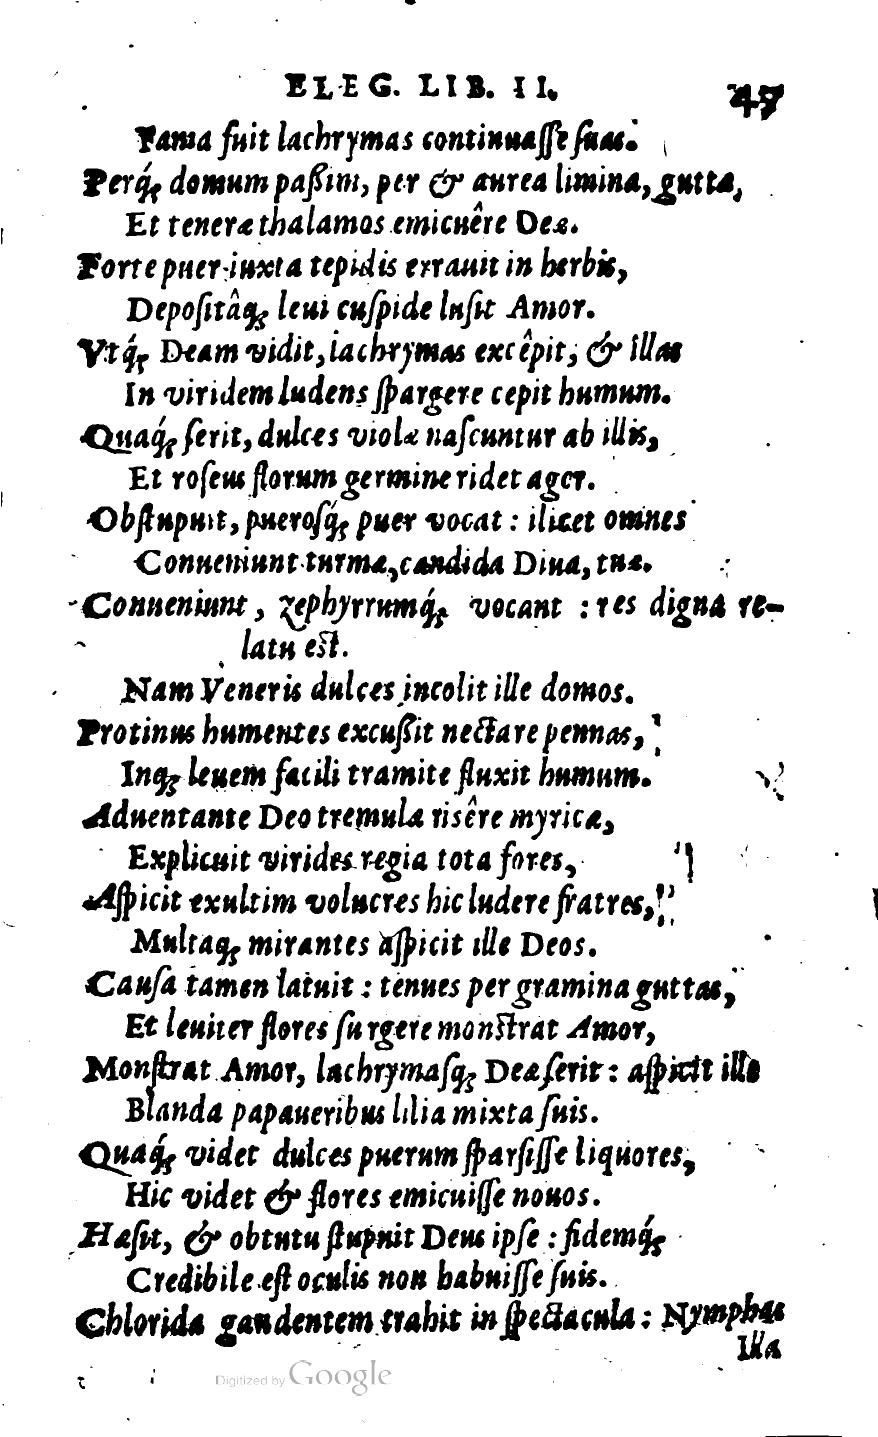 ELEG. LIB. II. 47
Fama fuit lachrymas continuaſſe ſuas.
Perq́; domum paßim, per & aurea limina, guttæ,
Et teneræ thalamos emicuêre Deæ.
Forte puer iuxta tepidis errauit in herbis,
Depoſitâq; leui cuſpide luſit Amor.
Vtq́; Deam vidit, lachrymas excêpit, & illas
In viridem ludens ſpargere cepit humum.
Quaq́; ſerit, dulces violæ naſcuntur ab illis,
Et roſeus florum germine ridet ager.
Obſtupuit, pueroſq́; puer vocat : ilicet omnes
Conueniunt turmæ, candida Diua, tuæ.
Conueniunt, zephyrrumq́; vocant : res digna re-
latu eſt.
Nam Veneris dulces incolit ille domos.
Protinus humentes excußit nectare pennas,
Inq; leuem facili tramite fluxit humum.
Aduentante Deo tremulæ risêre myricæ,
Explicuit virides regia tota fores,
Aſpicit exultim volucres hic ludere fratres,
Multaq; mirantes aſpicit ille Deos.
Cauſa tamen latuit : tenues per gramina guttas,
Et leuiter flores ſurgere monſtrat Amor,
Monſtrat Amor, lachrymaſq; Deæ ſerit : aſpicit ille
Blanda papaueribus lilia mixta ſuis.
Quaq́; videt dulces puerum ſparſiſſe liquores,
Hic videt & flores emicuiſſe nouos.
Hæſit, & obtutu ſtupuit Deus ipſe : fidemq́;
Credibile eſt oculis non habuiſſe ſuis.
Chlorida gaudentem trahit in ſpectacula : Nymphas
Illa
Digitized by Google